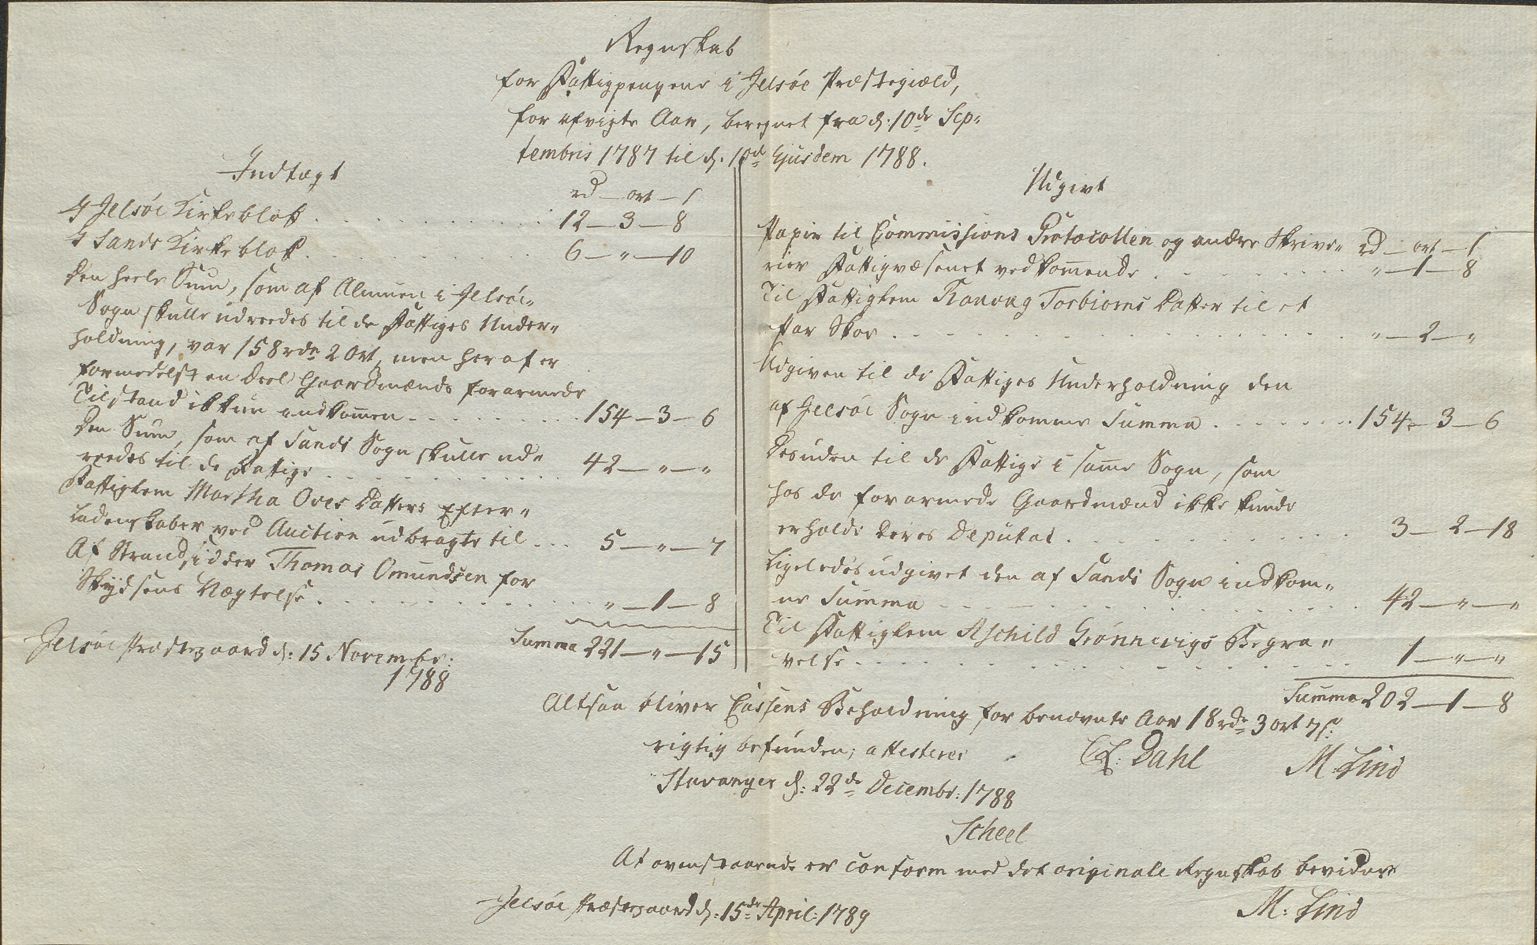 Regnskab
for Fattigpengene i Jelsøe Præstegield,
for afvigte Aar, beregnet fra d: 10de Sep-
tembris 1787 til d. 10de Ejusdem 1788.
Indtægt
rd — ort — s
I Jelsøe Kirkeblok . . . . . 12 — 3 — 8
I Sands Kirkeblok . . . . . 6 — " — 10
Den heele Sum, som af Almuen i Jelsøe
Sogn skulle udreedes til de Fattiges Under-
holdning, var 158 rdr 2 Ort, men heraf er
formedelst en Deel Gaardmænds forarmede
Tilstand ikkun indkommen . . . . . 154 — 3 — 6
Den Sum, som af Sands Sogn skulle ud-
reedes til de Fattige . . . . . 42 — " — "
Fattiglem Martha Oves Datters Efter-
ladenskaber ved Auction udbragte til . . . 5 — " — 7
Af Strandsidder Thomas Omundsen for
Skydsens Nægtelse . . . . . " — 1 — 8
Summa 221 — " — 15
Jelsøe Præstegaard d: 15 Novembr:
1788
Udgivt
Papir til Commissions Protocollen og andre Skrive-
rd — ort — s
rier Fattigvæsenet vedkommende . . . . . " — 1 — 8
Til Fattiglem Ranvug Torbiorns Datter til et
Par Skoe . . . . . " — 2 — "
Udgiven til de Fattiges Underholdning den
af Jelsøe Sogn indkomne Summa . . . . . 154 — 3 — 6
Desuden til de Fattige i samme Sogn, som
hos de forarmede Gaardmænd ikke kunde
erholde deres Deputat . . . . . 3 — 2 — 18
Ligeledes udgivet den af Sands Sogn indkom-
ne Summa . . . . . 42 — " — "
Til Fattiglem Aschild Grønnevigs Begra-
velse . . . . . 1 — " — "
Summa 202 — 1 — 8
Altsaa bliver Cassens Beholdning for benævnte Aar 18 rdr 3 ort 7 s:
rigtig befunden, attesteres
Dahl M: Lind
Stavanger d: 22de Decembr: 1788
Scheel
At ovenstaaende er conform med det originale Regnskab bevidner
Jelsøe Præstegaard d: 15de April: 1789
M: Lind